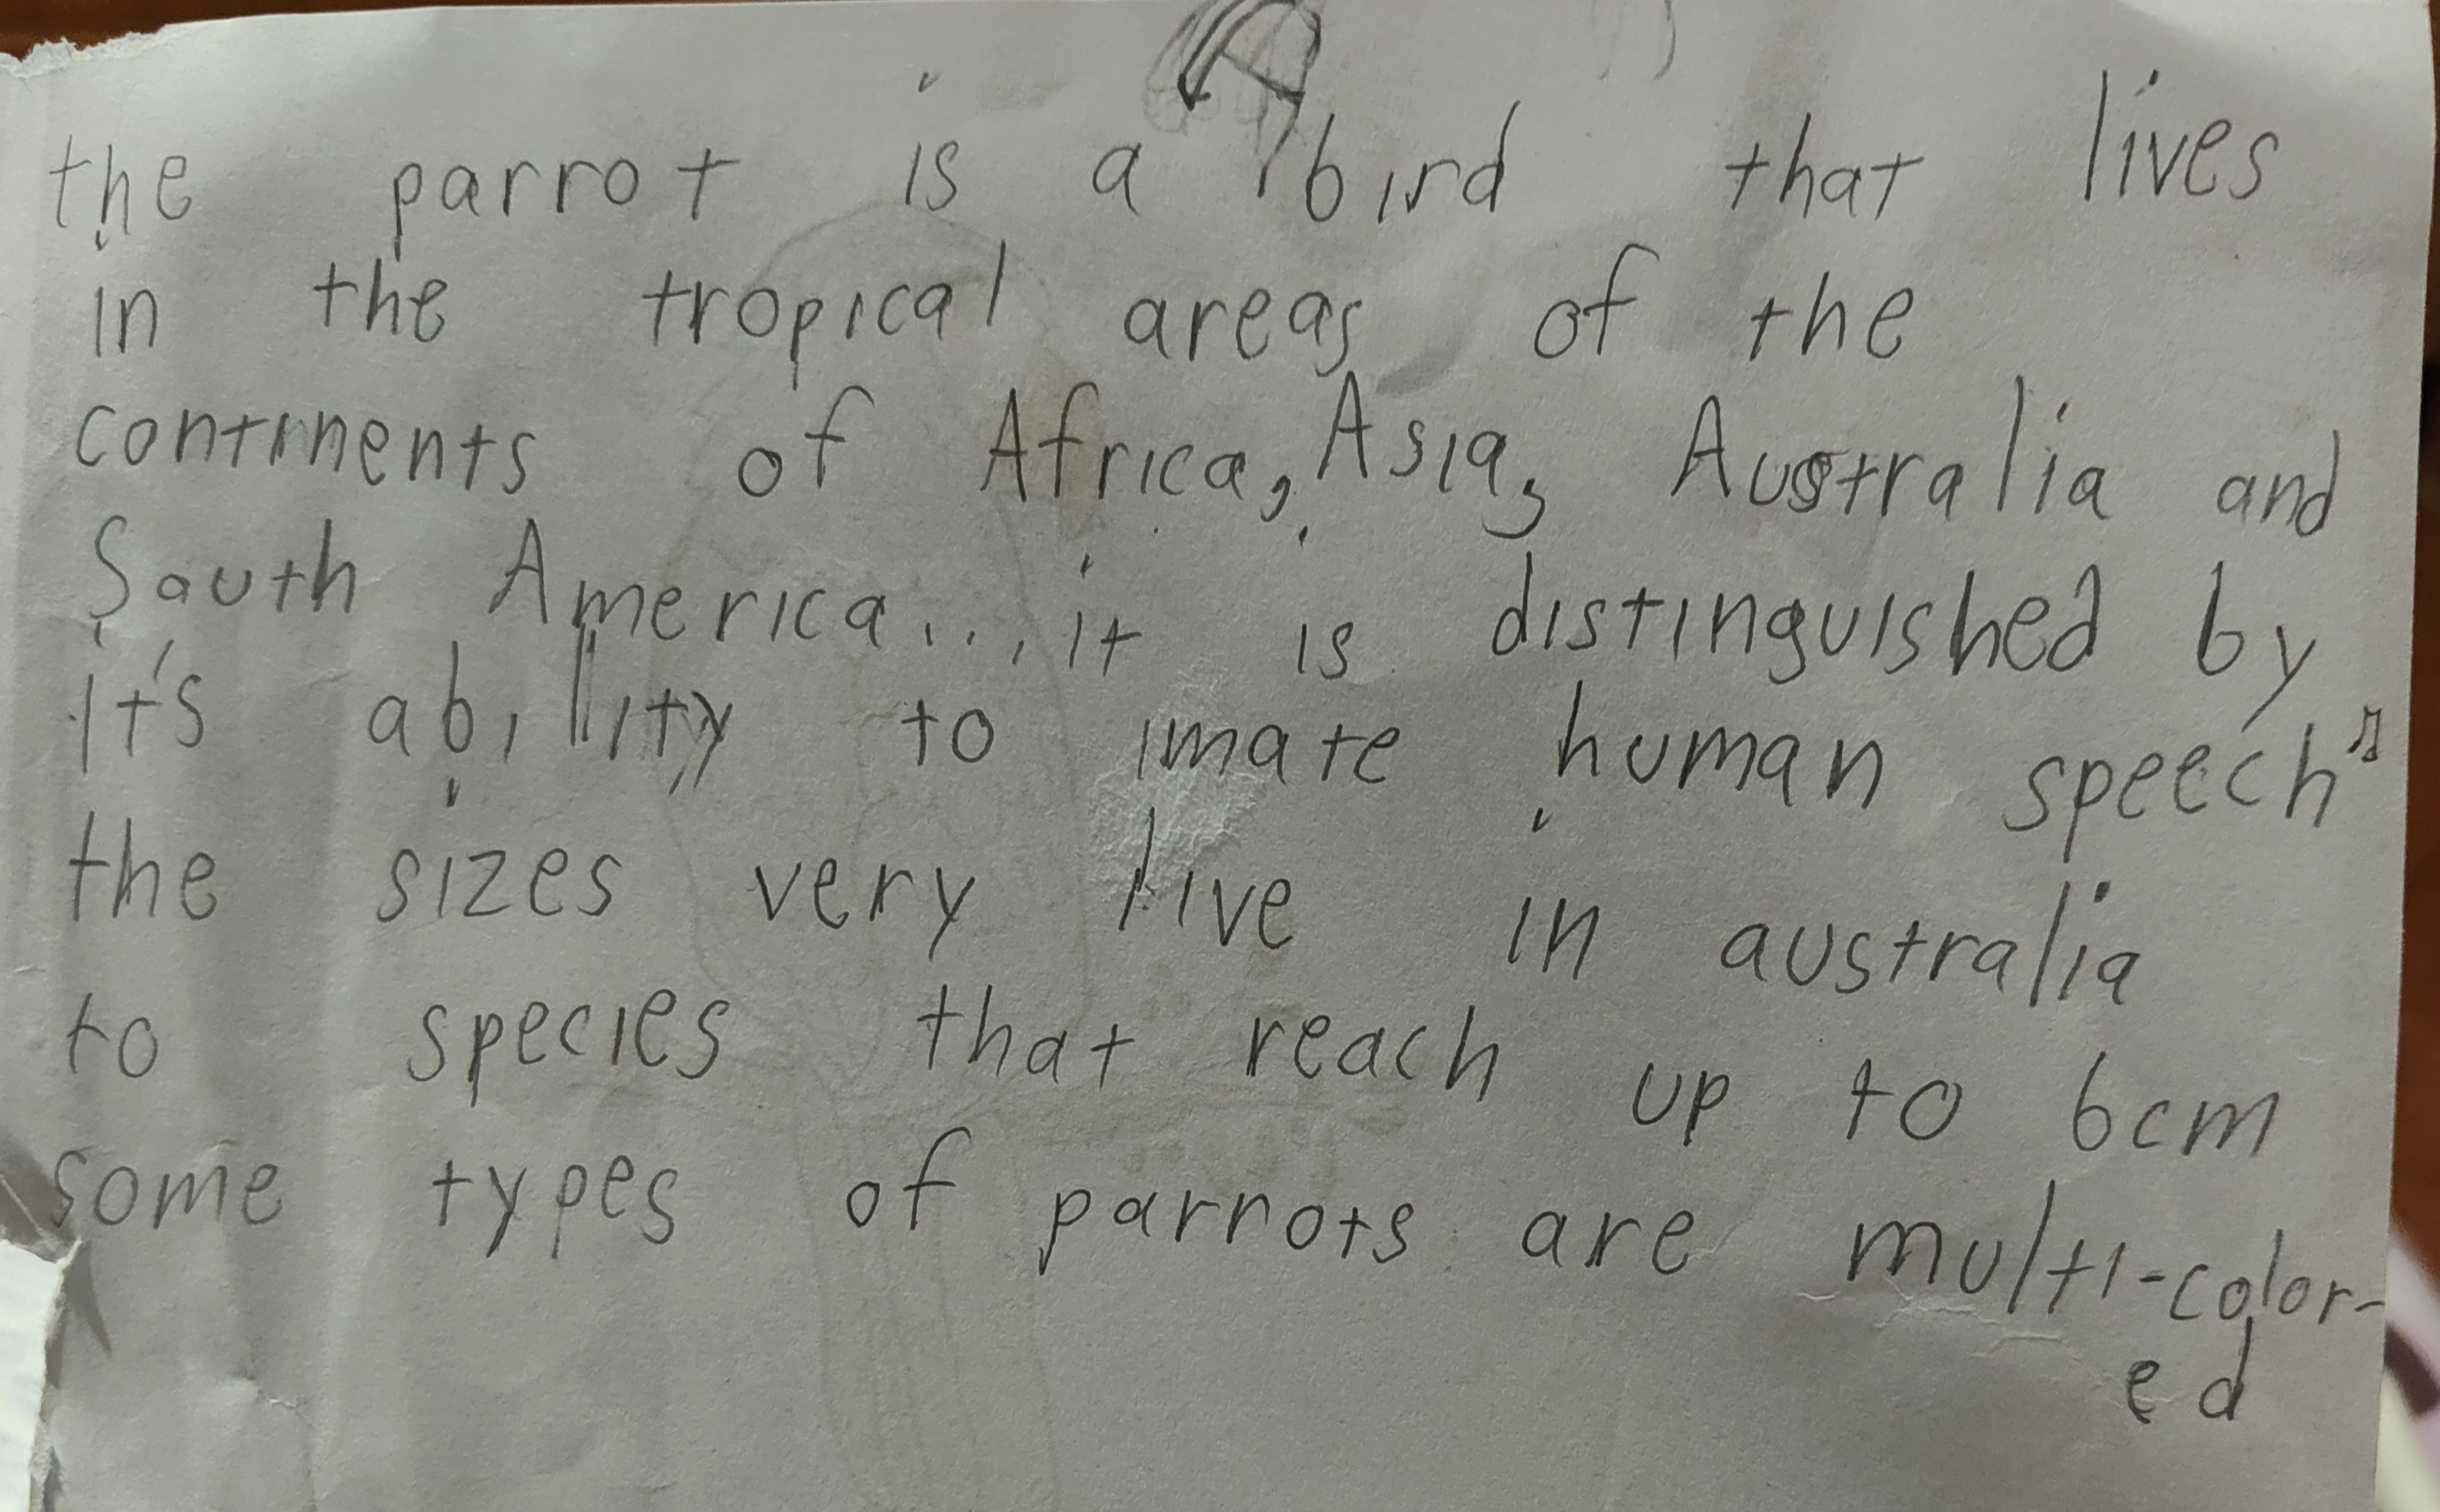 the parrot is a bird that lives
in the tropical areas of the
continents of Africa, Asia, Australia and
Sauth America... it is distinguished by
it's abillity to imate human speech♫
the sizes very live in australia
to species that reach up to 6cm
some types of parrots are multi-color-
ed